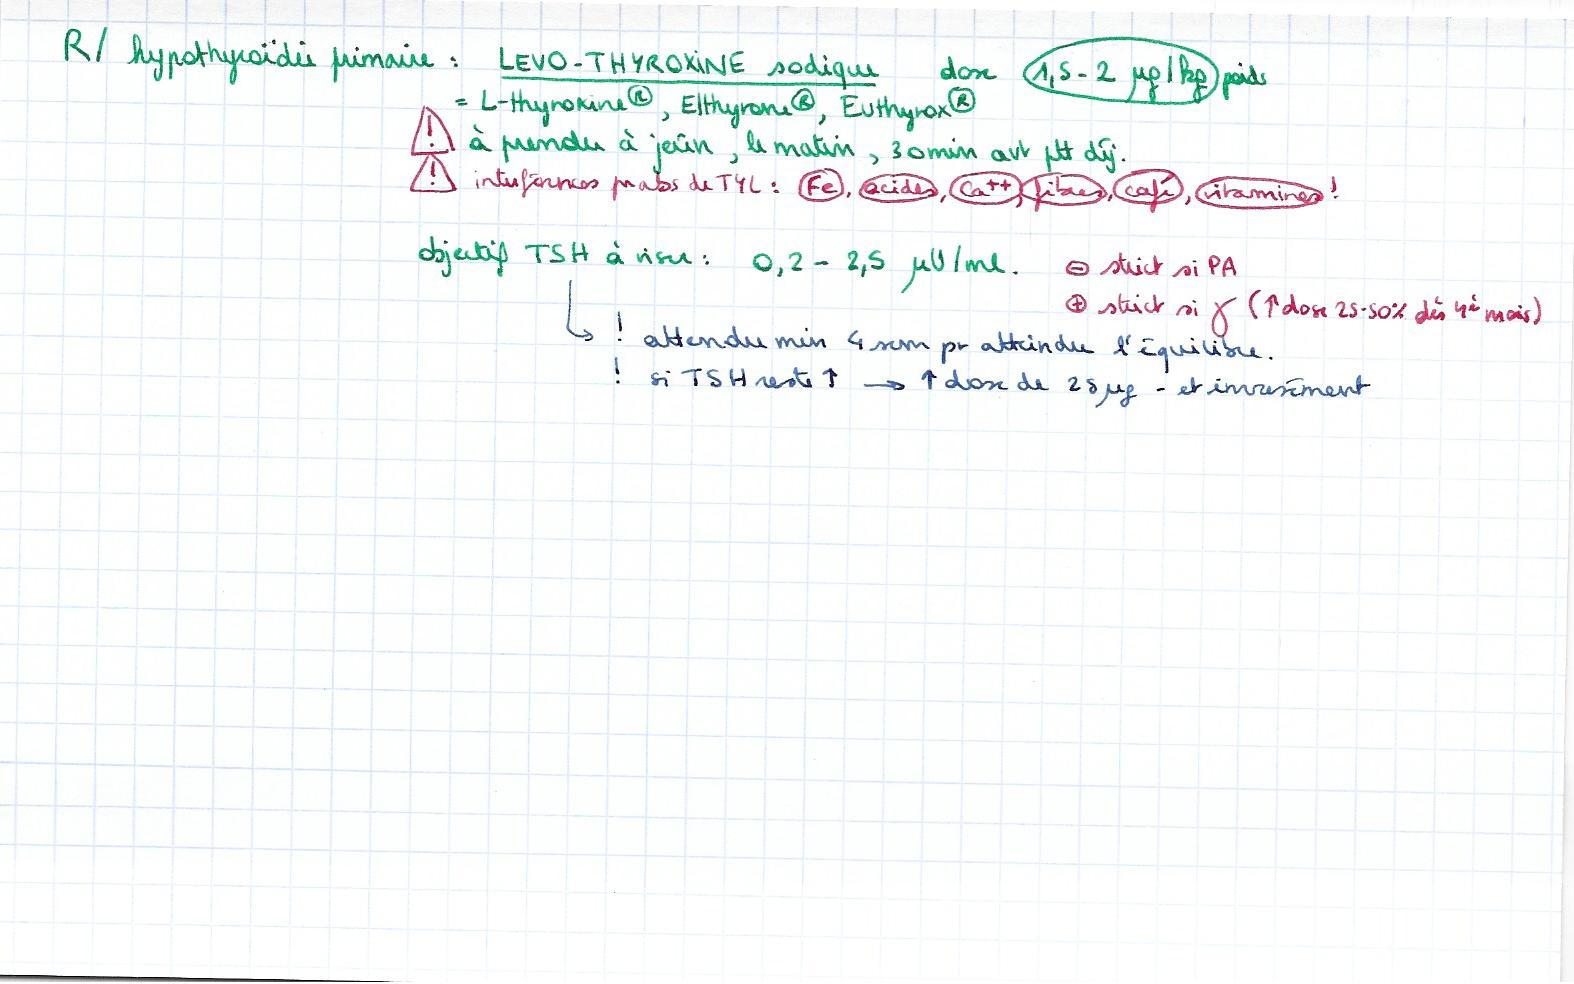 R/ hypothyroïdie primaire : LEVO-THYROXINE sodique dose 1,5-2 µg/kg poids
= L-thyroxine®, Elthyrone®, Euthyrox®
⚠ à prendre à jeûn, le matin, 30min avt ptt déj.
⚠ interférences pr abs de TYL : Fe, acides, Ca++, fibres, café, vitamines !
objectif TSH à viser : 0,2 - 2,5 µU/ml. ⊖ strict si PA
⊕ strict si (↑dose 25-50% dès 4è mois)
↳ ! attendre min 4 sem pr atteindre l'équilibre.
! si TSH reste ↑ → ↑ dose de 25µg - et inversément